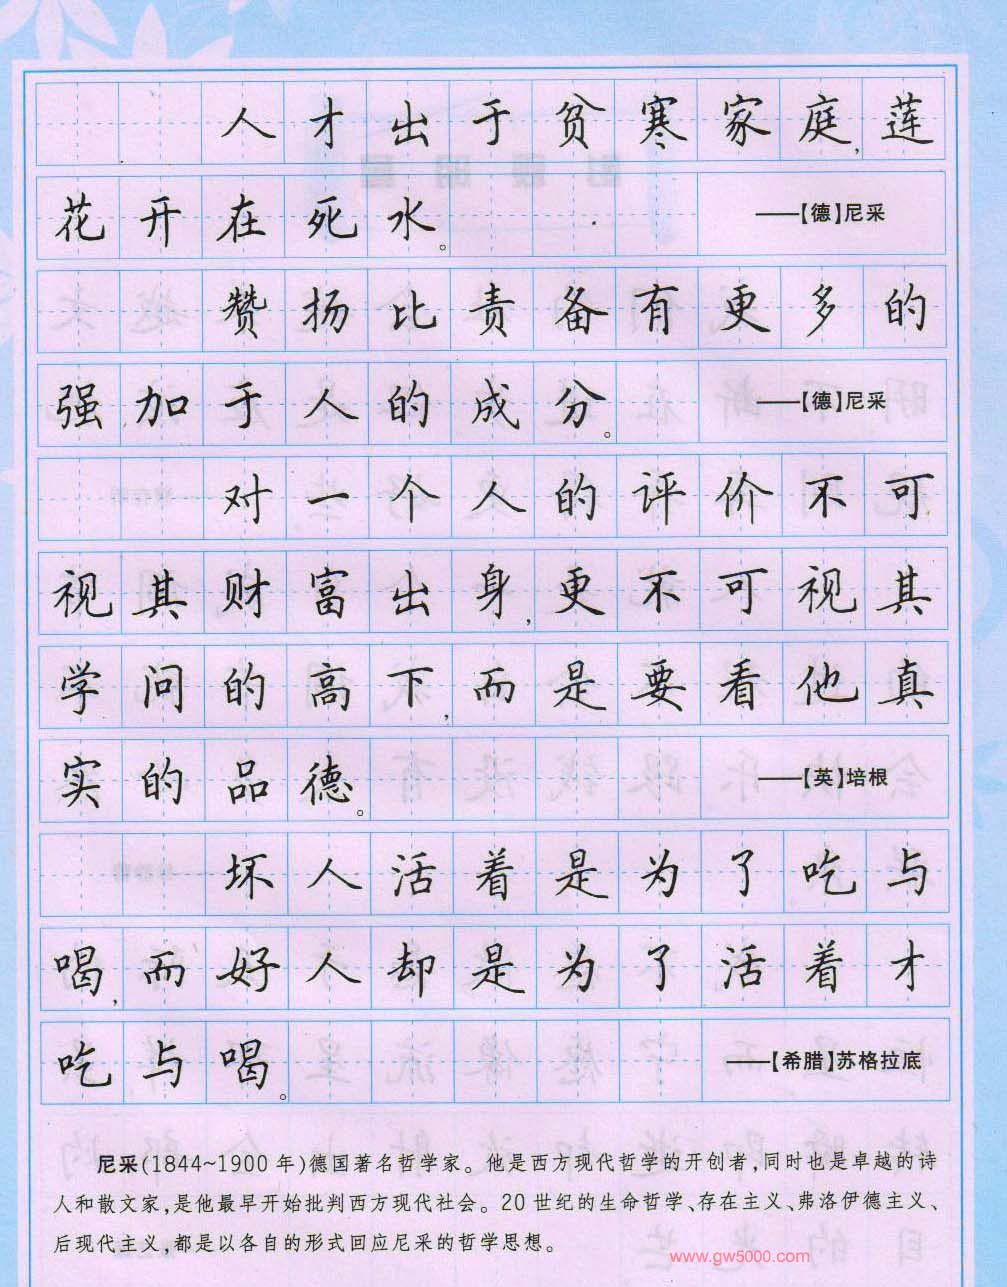 人才出于贫寒家庭,莲
花开在死水。 ——【德】尼采
赞扬比责备有更多的
强加于人的成分。 ——【德】尼采
对一个人的评价不可
视其财富出身,更不可视其
学问的高下,而是要看他真
实的品德。 ——【英】培根
坏人活着是为了吃与
喝,而好人却是为了活着才
吃与喝。 ——【希腊】苏格拉底
尼采(1844~1900年)德国著名哲学家。他是西方现代哲学的开创者,同时也是卓越的诗
人和散文家,是他最早开始批判西方现代社会。20世纪的生命哲学、存在主义、弗洛伊德主义、
后现代主义,都是以各自的形式回应尼采的哲学思想。
www.gw5000.com